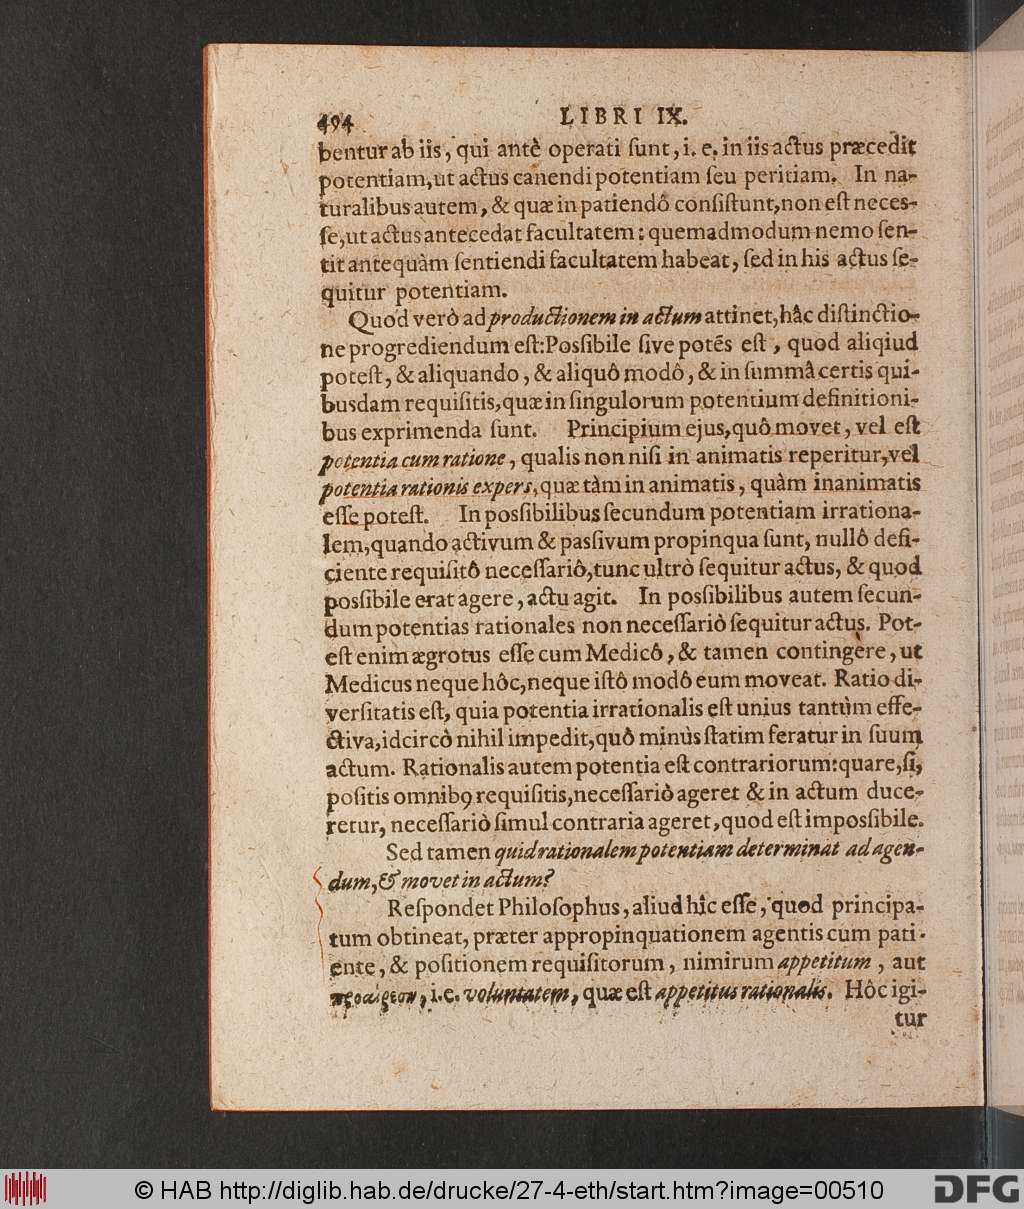 494 LIBRI IX.
bentur ab iis, qui antè operati ſunt, i. e. in iis actus præcedit
potentiam, ut actus canendi potentiam ſeu peritiam. In na-
turalibus autem, & quæ in patiendô conſiſtunt, non eſt neces-
ſe, ut actus antecedat facultatem: quemadmodum nemo ſen-
tit antequàm ſentiendi facultatem habeat, ſed in his actus ſe-
quitur potentiam.
Quod verò ad productionem in actum attinet, hâc diſtinctio-
ne progrediendum eſt: Posſibile ſive potẽs eſt, quod aliqiud
poteſt, & aliquando, & aliquô modô, & in ſummâ certis qui-
busdam requiſitis, quæ in ſingulorum potentium definitioni-
bus exprimenda ſunt. Principium ejus, quô movet, vel eſt
potentia cum ratione, qualis non niſi in animatis reperitur, vel
potentia rationis expers, quæ tàm in animatis, quàm inanimatis
eſſe poteſt. In posſibilibus ſecundum potentiam irrationa-
lem, quando activum & pasſivum propinqua ſunt, nullô defi-
ciente requiſitô neceſſariô, tunc ultrò ſequitur actus, & quod
posſibile erat agere, actu agit. In posſibilibus autem ſecun-
dum potentias rationales non neceſſariò ſequitur actus. Pot-
eſt enim ægrotus eſſe cum Medicô, & tamen contingere, ut
Medicus neque hôc, neque iſtô modô eum moveat. Ratio di-
verſitatis eſt, quia potentia irrationalis eſt unius tantùm effe-
ctiva, idcircò nihil impedit, quô minùs ſtatim feratur in ſuum
actum. Rationalis autem potentia eſt contrariorum: quare, ſi,
poſitis omnibꝰ requiſitis, neceſſariò ageret & in actum duce-
retur, neceſſariò ſimul contraria ageret, quod eſt imposſibile.
Sed tamen quid rationalem potentiam determinat ad agen-
dum, & movet in actum?
Reſpondet Philoſophus, aliud hîc eſſe, quod principa-
tum obtineat, præter appropinquationem agentis cum pati-
ente, & poſitionem requiſitorum, nimirum appetitum, aut
προαίρεσιν, i. e. voluntatem, quæ eſt appetitus rationalis. Hôc igi-
tur
© HAB http://diglib.hab.de/drucke/27-4-eth/start.htm?image=00510
DFG